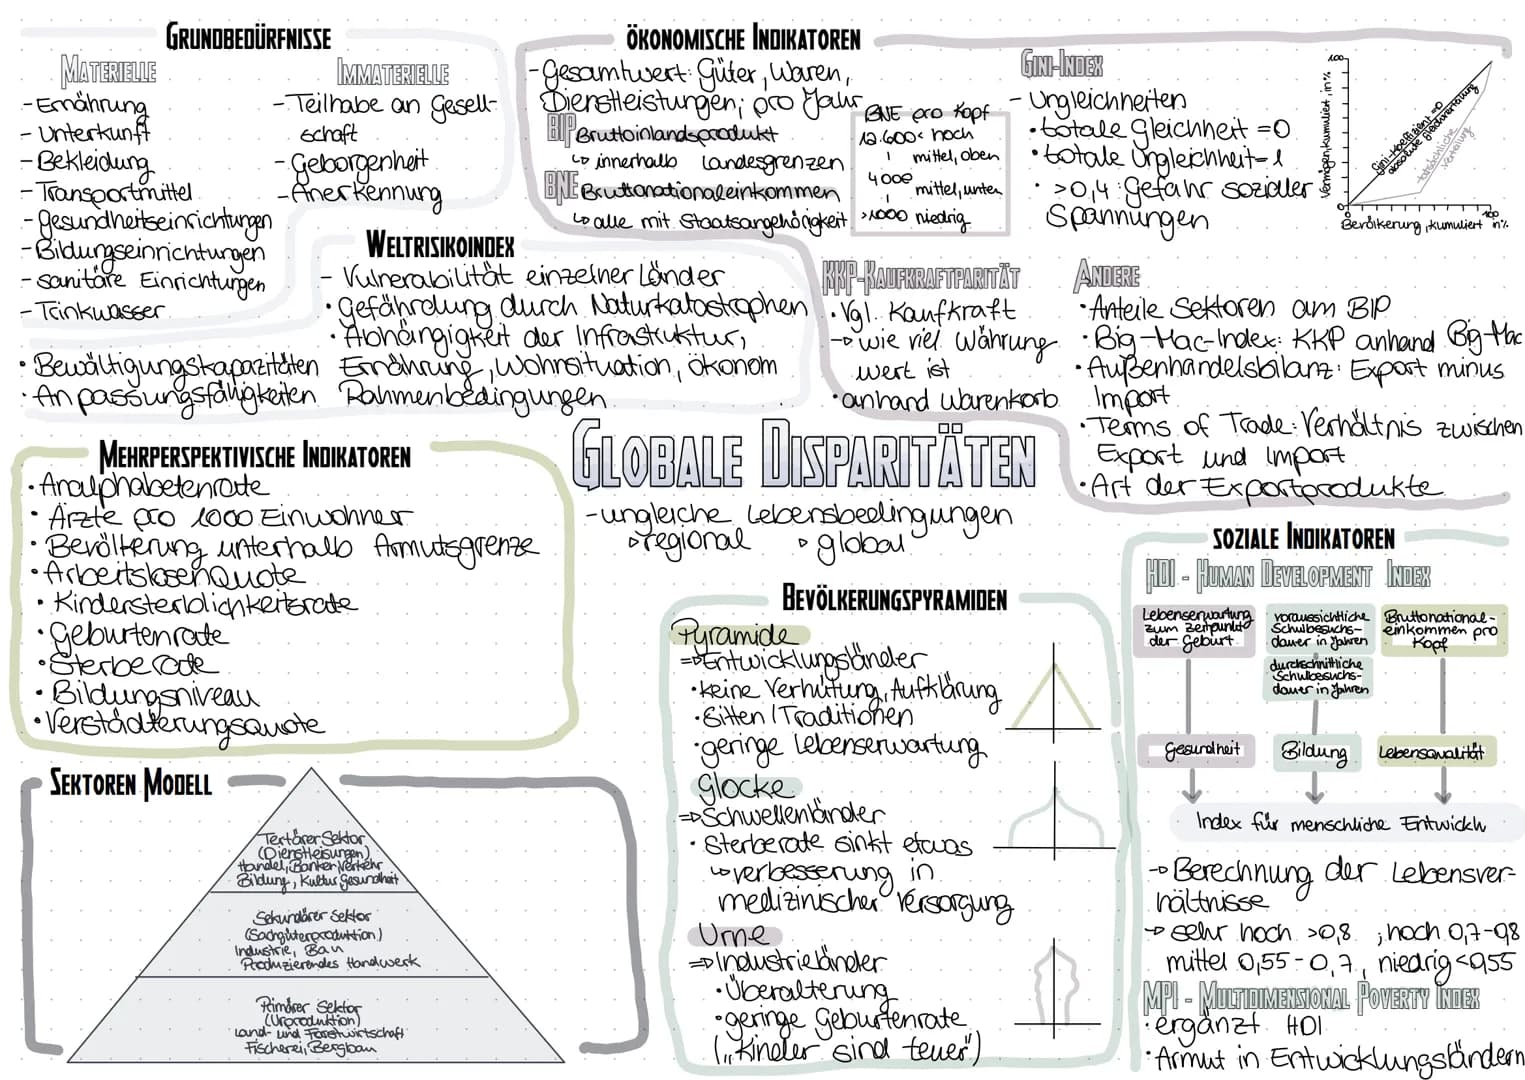 GRUNDBEDÜRFNISSE
MATERIELLE
- Ernährung
- Unterkunft
- Bekleidung
- Transportmittel
- Gesundheitseinrichtungen
- Bildungseinrichtungen
- sanitäre Einrichtungen
- Trinkwasser
IMMATERIELLE
- Teilhabe an Gesell-
schaft
- Geborgenheit
- Anerkennung
WELTRISIKOINDEX
- Vulnerabilität einzelner Länder
• Gefährdung durch Naturkatastrophen
• Abhängigkeit der Infrastuktur,
Ernährung, Wohnsituation, ökonom
Rahmenbedingungen
• Bewältigungskapazitäten
• Anpassungsfähigkeiten
ÖKONOMISCHE INDIKATOREN
- Gesamtwert: Güter, Waren,
Dienstleistungen; pro Jahr
BIP Bruttoinlandsprodukt
↳ innerhalb Landesgrenzen
BNE Bruttonationaleinkommen
↳ alle mit Staatsangehörigkeit
BNE pro Kopf
12.600< hoch
| mittel, oben
4000
| mittel, unten
>1000 niedrig
GINI-INDEX
- Ungleichheiten
• totale Gleichheit = 0
• totale Ungleichheit = 1
• >0,4: Gefahr sozialer
Spannungen
Vermögen, kumuliert, in %
100
0
Gini-Koeffizient = 0
absolute Gleichverteilung
tatsächliche
Verteilung
0
100
Bevölkerung, kumuliert in %
KKP-KAUFKRAFTPARITÄT
• Vgl. Kaufkraft
→ wie viel Währung
wert ist
• anhand Warenkorb
ANDERE
• Anteile Sektoren am BIP
• Big-Mac-Index: KKP anhand Big-Mac
• Außenhandelsbilanz: Export minus
Import
• Terms of Trade: Verhältnis zwischen
Export und Import
• Art der Exportprodukte
GLOBALE DISPARITÄTEN
- ungleiche Lebensbedingungen
▹ regional ▹ global
MEHRPERSPEKTIVISCHE INDIKATOREN
• Analphabetenrate
• Ärzte pro 1000 Einwohner
• Bevölkerung unterhalb Armutsgrenze
• Arbeitslosenquote
• Kindersterblichkeitsrate
• Geburtenrate
• Sterberate
• Bildungsniveau
• Verstädterungsquote
SEKTOREN MODELL
Tertärer Sektor
(Dienstleisungen)
Handel, Banken, Verkehr
Bildung, Kultur, Gesundheit
Sekundärer Sektor
(Sachgüterproduktion)
Industrie, Bau
Produzierendes Handwerk
Primärer Sektor
(Urproduktion)
Land- und Forstwirtschaft
Fischerei, Bergbau
BEVÖLKERUNGSPYRAMIDEN
Pyramide
⇒ Entwicklungsländer
• keine Verhütung, Aufklärung
• Sitten / Traditionen
• geringe Lebenserwartung
Glocke
⇒ Schwellenländer
• Sterberate sinkt etwas
↳ verbesserung in
medizinischer Versorgung
Urne
⇒ Industrieländer
• Überalterung
• geringe Geburtenrate
(„Kinder sind teuer“)
SOZIALE INDIKATOREN
HDI - HUMAN DEVELOPMENT INDEX
Lebenserwartung
zum Zeitpunkt
der Geburt
voraussichtliche
Schulbesuchs-
dauer in Jahren
durchschnittliche
Schulbesuchs-
dauer in Jahren
Bruttonational-
einkommen pro
Kopf
Gesundheit
Bildung
Lebensqualität
Index für menschliche Entwickln
→ Berechnung der Lebensver-
hältnisse
→ sehr hoch >0,8 ; hoch 0,7-0,8
mittel 0,55-0,7, niedrig <0,55
MPI - MULTIDIMENSIONAL POVERTY INDEX
• ergänzt HDI
• Armut in Entwicklungsländern